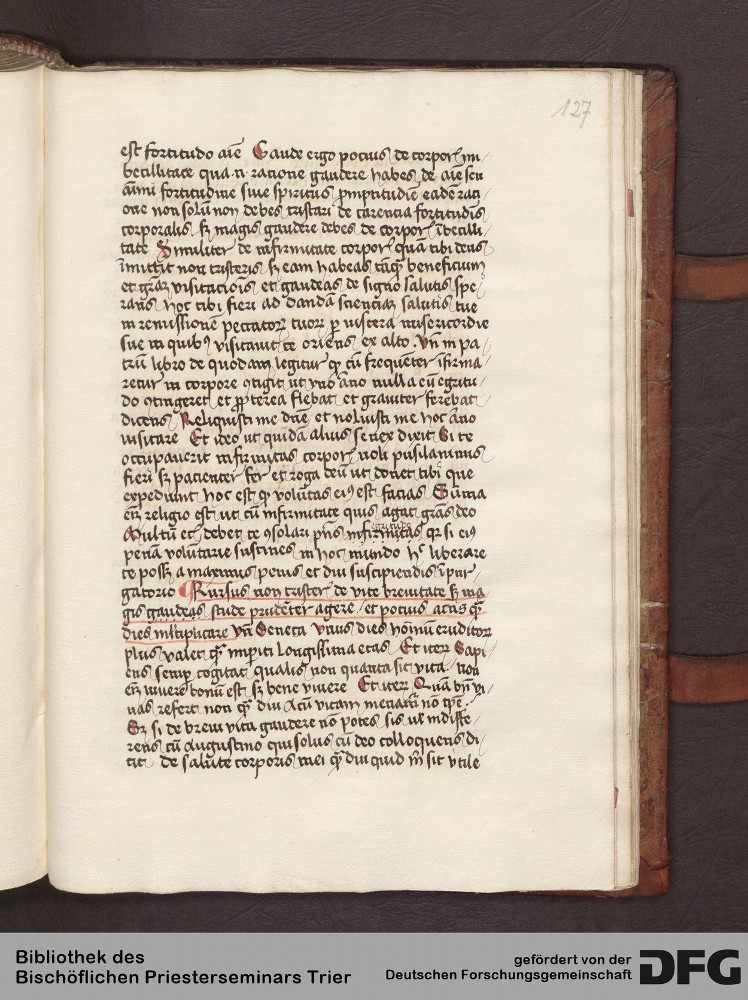 127
est fortitudo aīe Gaude ergo pocius de corpor̄ im
becillitate qua ti ratione gaudere habes de aīe seu
aīmi fortitudine siue spiritus p̄mptitudīe eadē rati
one non solū non debes tristari de carencia fortitudīs
corporalis sꝫ magis gaudere debes de corpor̄ ībecilli
tate Similiter de infirmitate corpor̄ quā tibi deus
īmittit non tristeris sꝫ eam habeas tāqꝫ beneficium
et grām visitacionis et gaudeas de signo salutis spe
rans hoc tibi fieri ad dandā scienciam salutis tue
in remissionē peccator̄ tuor̄ p viscera misericordie
sue in quibꝰ visitauit te oriens ex alto Vn̄ in pa
trū libro de quodam legitur qꝫ cū frequēter īfirma
retur in corpore ꝯtigit ut vno āno nulla eū egritu
do ꝯtingeret et ꝓpterea flebat et grauiter ferebat
dicens Reliquisti me dn̄e et noluisti me hoc āno
visitare Et ideo ut quidā alius senex dixit Si te
occupauerit infirmitas corpor̄ noli pusilanimus
fieri sꝫ pacienter fer et roga deū ut donet tibi que
expediunt hoc est qꝫ volūtas eiꝰ est facias Summa
em̄ religio est ut cū infirmitate quis agat grās deo
Multū eciā debet te ꝯsolari pn̄s infirmitas qꝛ si eiꝰ
penam volūtarie sustines in hoc mundo hꝫ liberare
te posse a maximis penis et diu suscipiendis ī pur
gatorio Rursus non tristeris de vite breuitate sꝫ ma
gis gaudeas stude prudēter agere et pocius actus qꝫ
dies multiplicare Vn̄ Seneca Vnus dies hōinū eruditor̄
plus valet qꝫ imperiti longissima etas Et iter̄ Sapi
ens semꝑ cogitat qualis non quanta sit vita non
em̄ viuere bonū est sꝫ bene viuere Et iter̄ Quā bn̄ vi
uas refert non qꝫ diu
Sꝫ si de breui vita gaudere nō potes sis vel indiffe
rens cū Augustino qui solus cū deo colloquens di
cit de salute corporis mei qꝫ diu quid m̄ sit vtile
Bibliothek des
Bischöflichen Priesterseminars Trier
gefördert von der
Deutschen Forschungsgemeinschaft
DFG